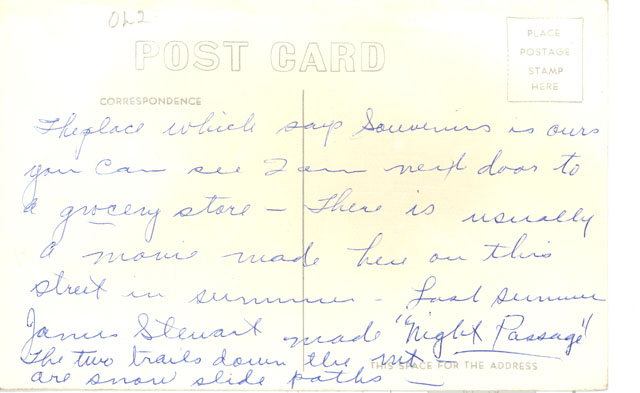 OL2
POST CARD
PLACE
POSTAGE
STAMP
HERE
CORRESPONDENCE
The place which says Souvenirs is ours
you can see I am next door to
a grocery store — There is usually
a movie made here on this
street in summer - Last summer
James Stewart made "Night Passage"
The two trails down the mt
THIS SPACE FOR THE ADDRESS
are snow slide paths —